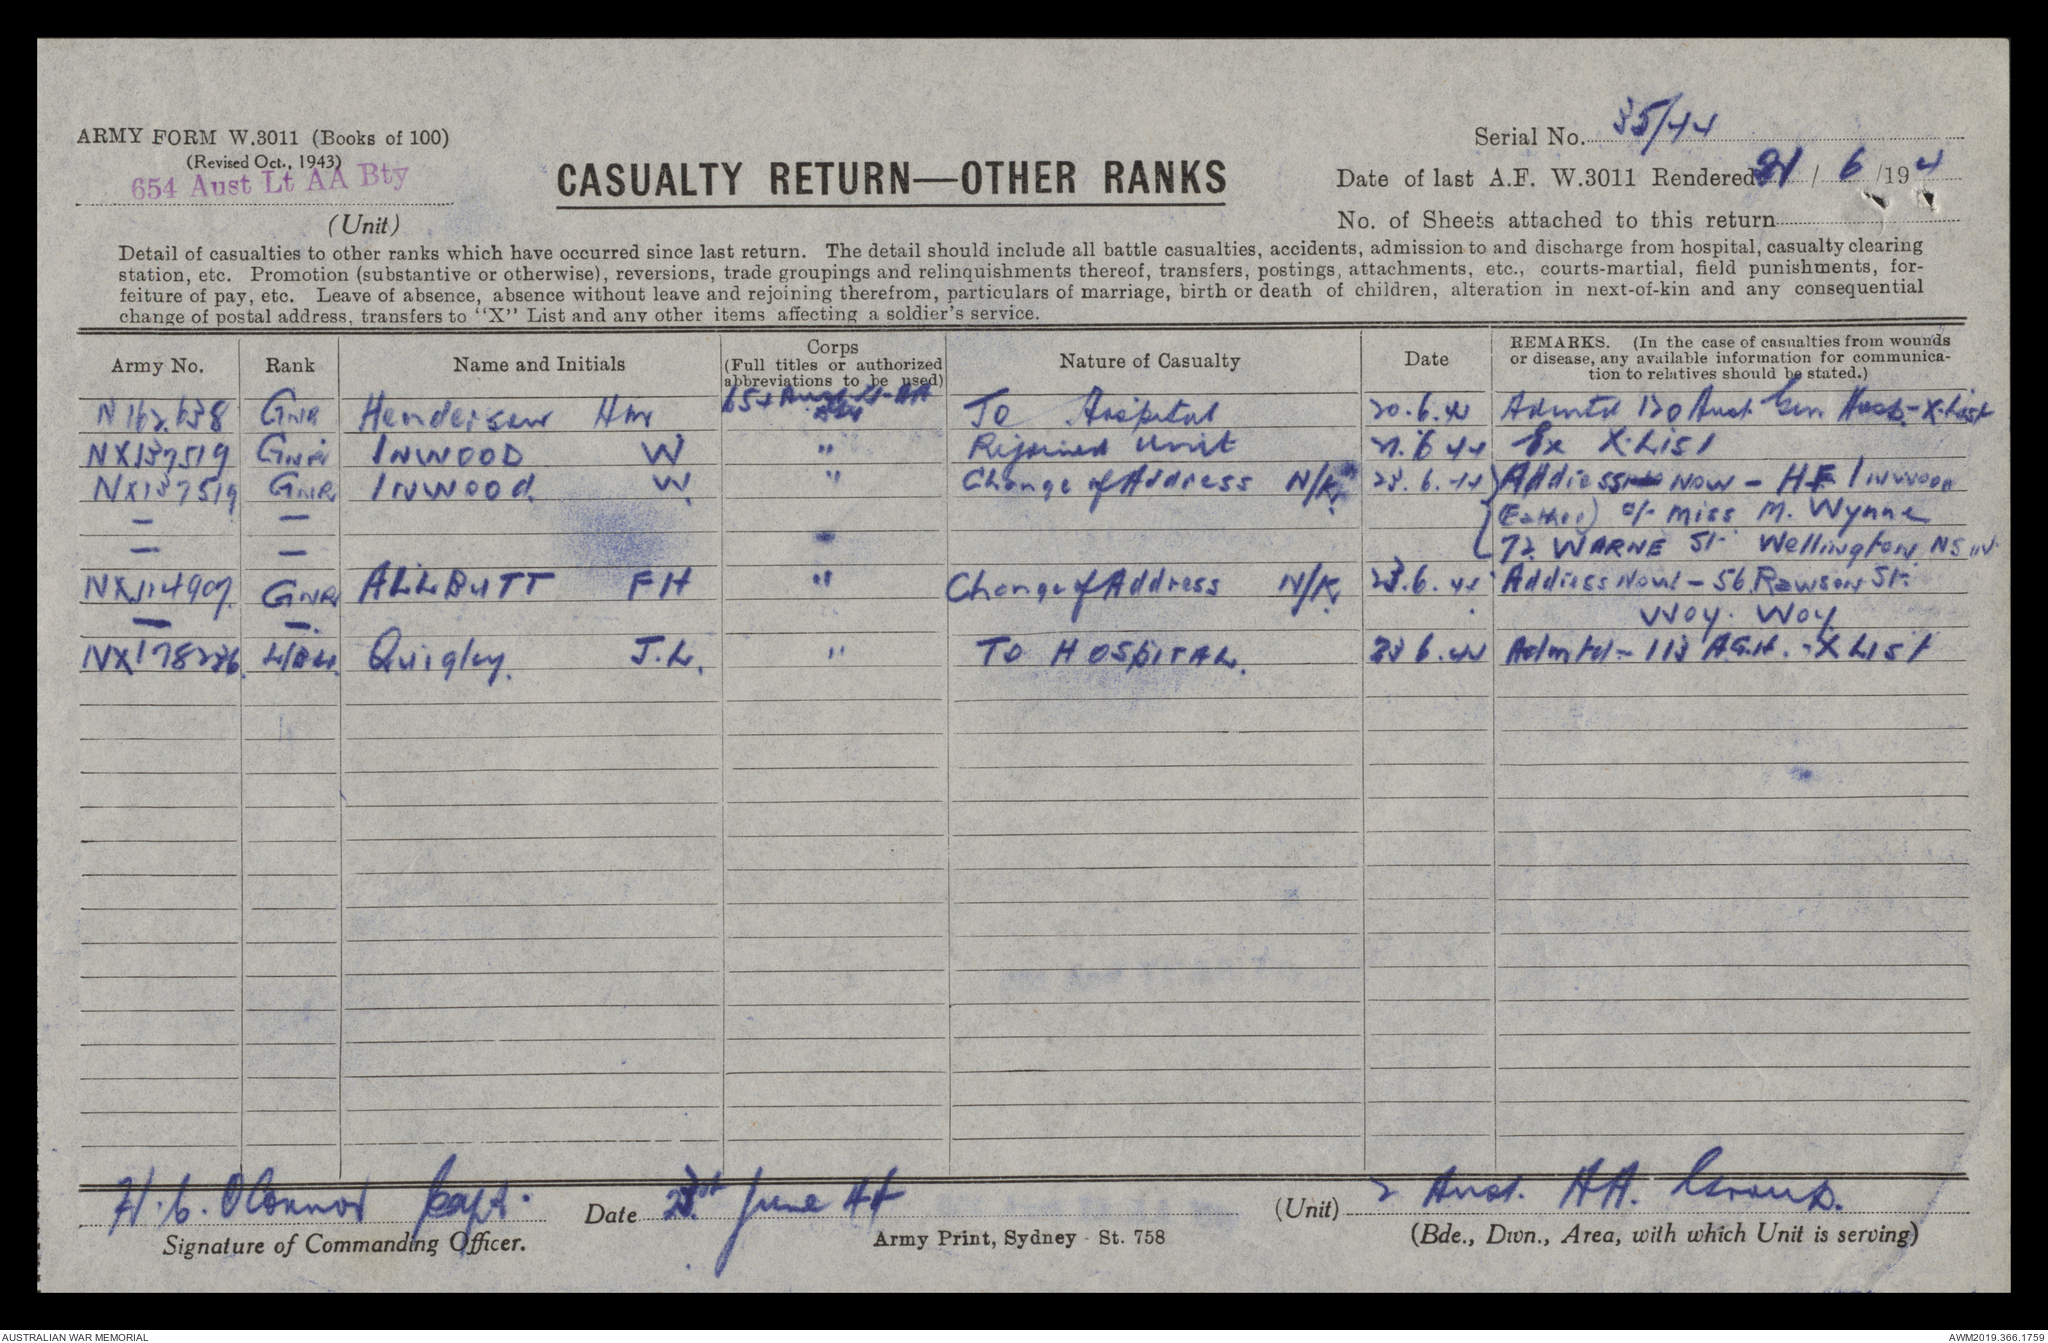 ARMY FORM W.3011 (Books of 100)
(Revised Oct., 1943)
654 Aust Lt AA Bty
(Unit)
CASUALTY RETURN—OTHER RANKS
Serial No. 35/44
Date of last A.F. W.3011 Rendered 21/6/194
No. of Sheets attached to this return
Detail of casualties to other ranks which have occurred since last return. The detail should include all battle casualties, accidents, admission to and discharge from hospital, casualty clearing
station, etc. Promotion (substantive or otherwise), reversions, trade groupings and relinquishments thereof, transfers, postings, attachments, etc., courts-martial, field punishments, for-
feiture of pay, etc. Leave of absence, absence without leave and rejoining therefrom, particulars of marriage, birth or death of children, alteration in next-of-kin and any consequential
change of postal address, transfers to "X" List and any other items affecting a soldier's service.
Army No. Rank Name and Initials Corps (Full titles or authorized abbreviations to be used) Nature of Casualty Date REMARKS. (In the case of casualties from wounds or disease, any available information for communica-tion to relatives should be stated.)
N162638 GNR Henderson HW 654 Aust Lt-AA Bty To Hospital 20.6.44 Admitd 120 Aust Gen Hosp-X-List
NX137519 GNR INWOOD W " Rejoined Unit 21.6 44 Ex X-LIST
NX137519 GNR INWOOd W. " Change of Address N/K. 23.6.44 Address Now - HF INWOOD
— — (Father) c/- Miss M. Wynne
— — 72 WARNE St. Wellington NSW.
NX114907 GNR ALLBUTT FH " Change of Address N/K. 23.6.44 Address Now - 56 Rawson St.
— — Woy. Woy
NX178236. L/BDR Quigley. J.L. " To HOSPITAL. 23 6.44 Admitd - 113 A.G.H. - X LIST
H. C. O'Connor Capt.
Signature of Commanding Officer.
Date June 44
Army Print, Sydney - St. 758
(Unit) 2 Aust. AA. Group.
(Bde., Divn., Area, with which Unit is serving)
AUSTRALIAN WAR MEMORIAL
AWM2019.366.1759